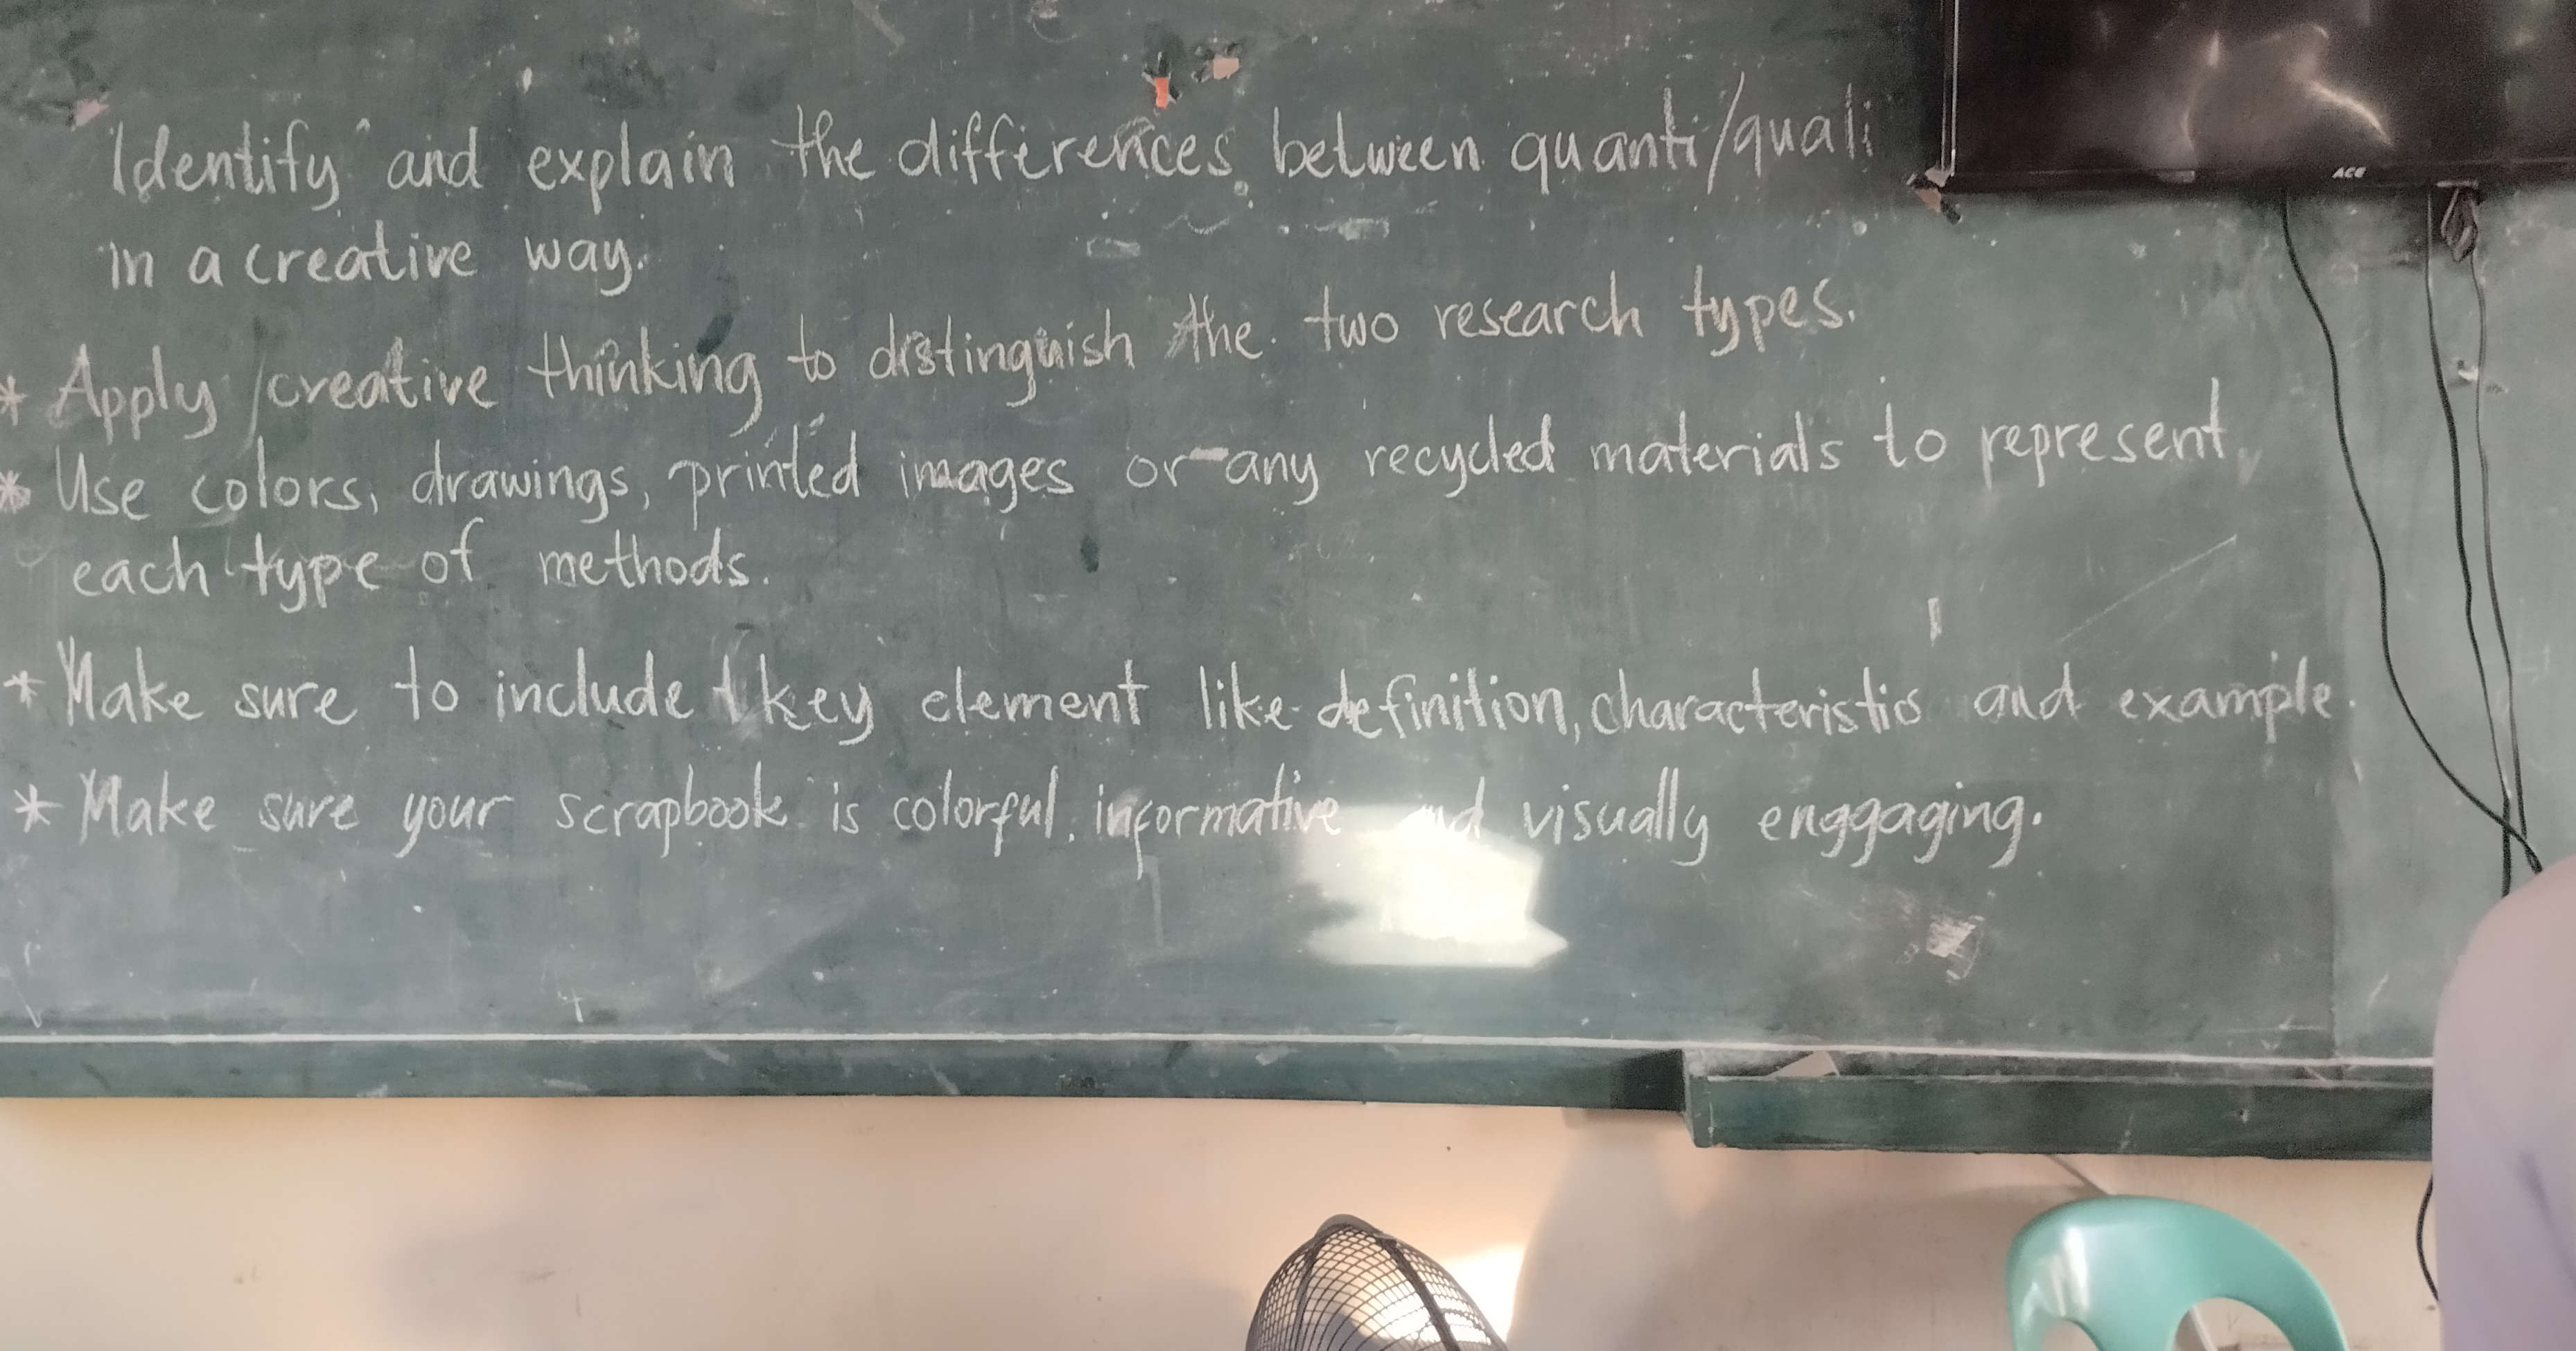 Identify and explain the differences between quanti/quali
in a creative way.
* Apply creative thinking to distinguish the two research types.
* Use colors, drawings, printed images or any recycled materials to represent
each type of methods.
* Make sure to include key element like definition, characteristics and example.
* Make sure your scrapbook is colorful, informative and visually enggaging.
ACE